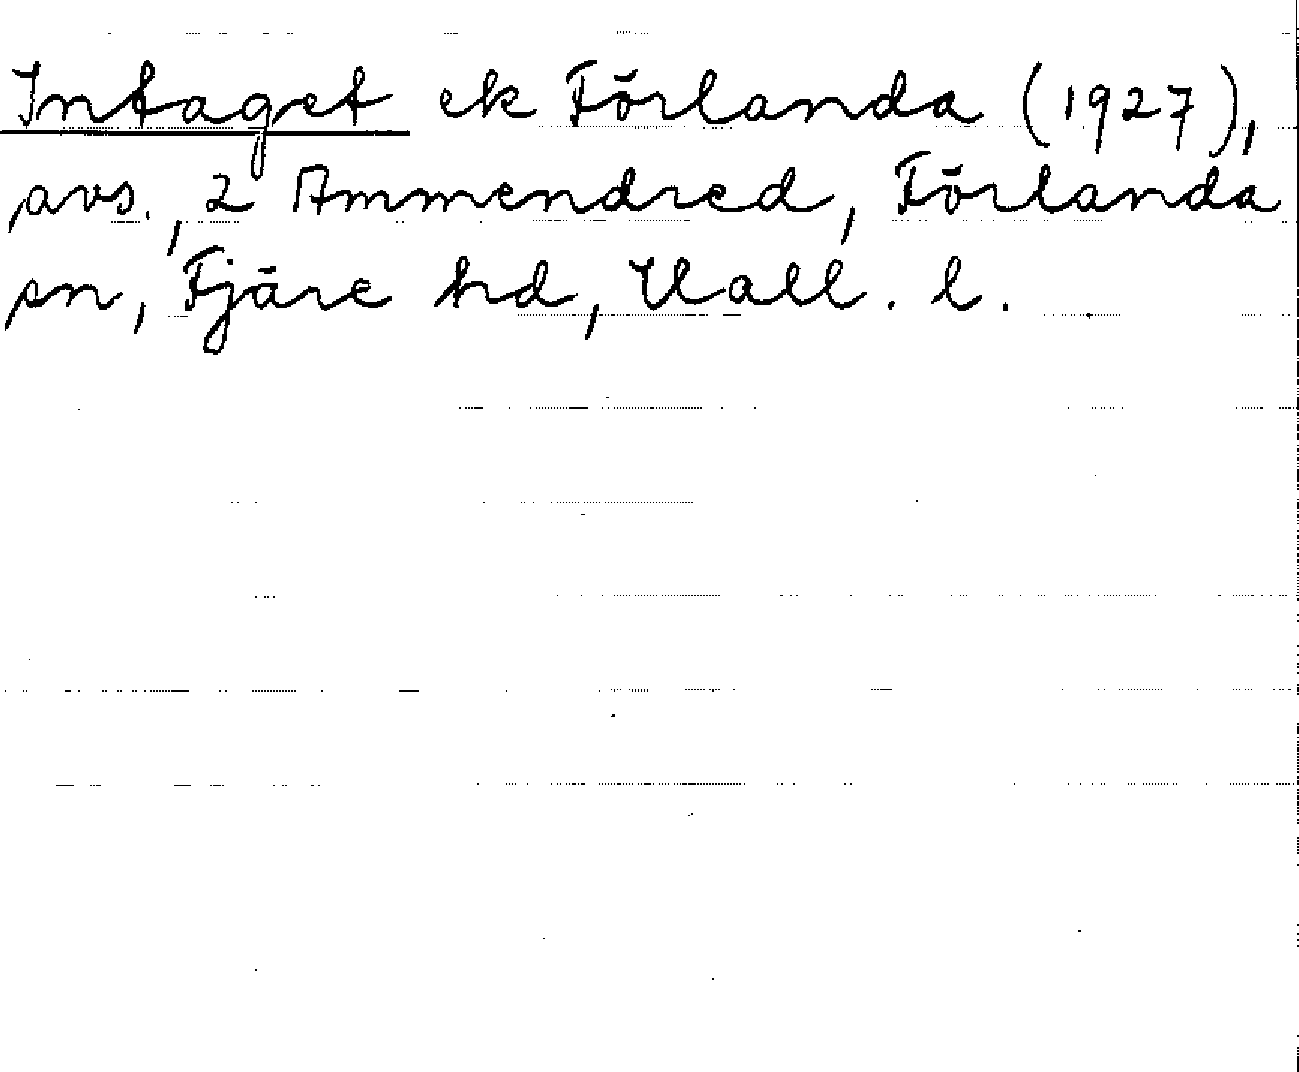 Intaget ek Förlanda (1927),
avs., 2 Ammendred, Förlanda
sn, Fjäre hd, Hall. l.